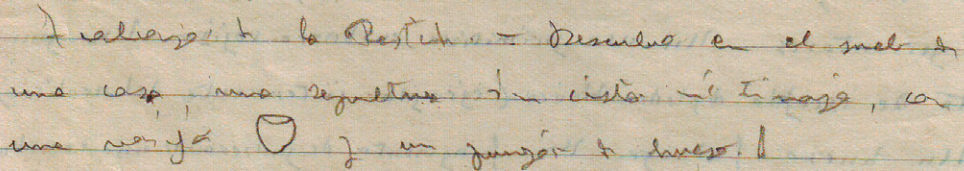 Trabajos de la Bastida. = Descubro en el suelo de
una casa, una sepultura sin cista ni tinaja, con
una vasija y un punzón de hueso.